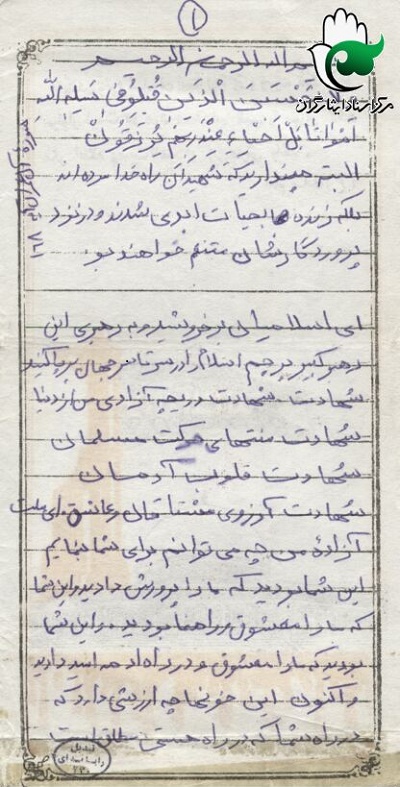 ۱
مرکز اسناد ایثارگران
بسم الله الرحمن الرحیم
ولا تحسبن الذین قتلوا فی سبیل الله
امواتا بل احیاء عند ربهم یرزقون
سوره آل عمران آیه
البته مپندارید که شهیدان راه خدا مرده اند
بلکه زنده به حیات ابدی شدند و در نزد
پروردگارشان متنعم خواهند بود
ای اسلامیان برخورشید و به رهبری این
رهبر کبیر پرچم اسلام را در سرتاسر جهان برپا کنید
شهادت شهادت دریچه آزادی من از دنیا
شهادت منتهای حرکت مسلمان
شهادت قلوب آدمسان
شهادت آرزوی مشتاقان و عاشق، ای ملت
آزادهٔ من چه می توانم برای شما بنمایم
این شما بودید که ما را پرورش دادید و این شما
که ما را معشوق و راهنما بودید و این شما
بودید که ما را معشوق و در راه او امید دادید
و اکنون این خونها چه ارزشی دارد که
در راه شما که در راه هستی مطلق است
تبدیل
رایانه ای